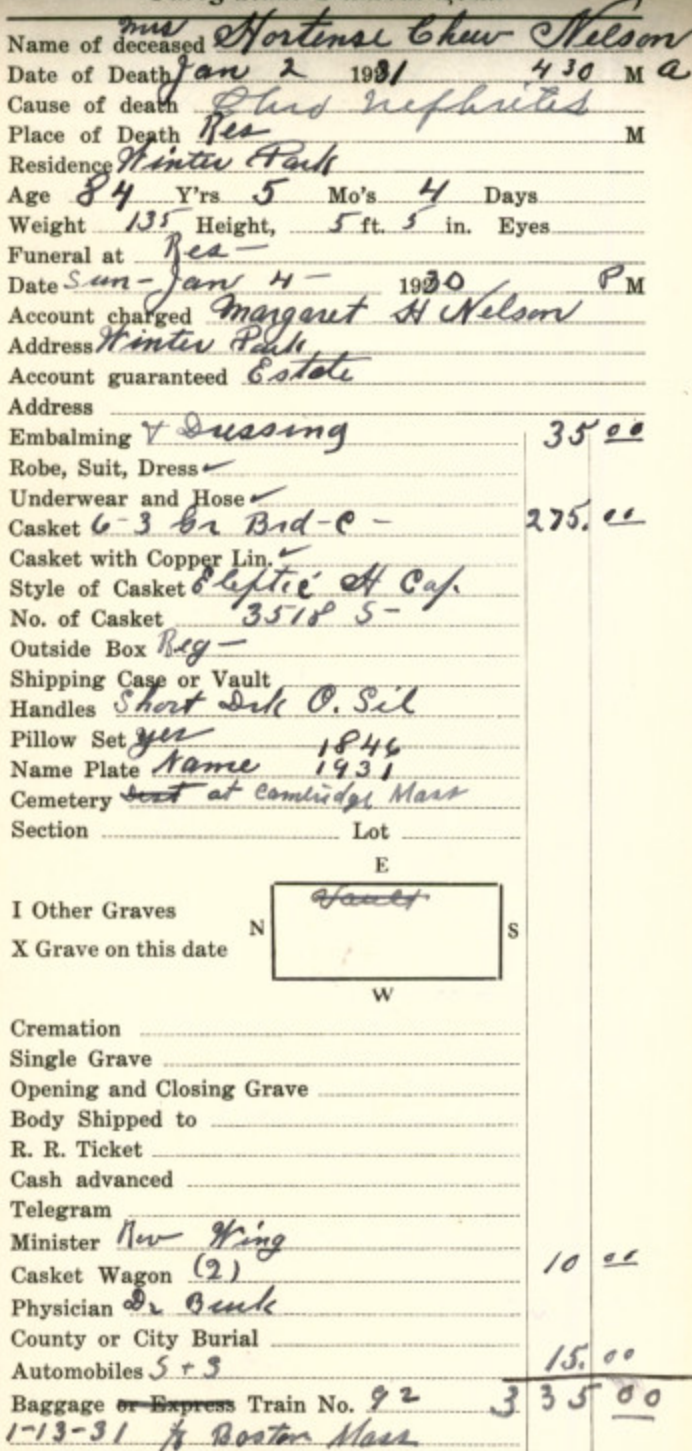 Name of deceased Mrs Hortense Chew Nelson
Date of Death Jan 2 1931 4 30 M a
Cause of death Chro nephrites
Place of Death Res M
Residence Winter Park
Age 84 Y'rs 5 Mo's 4 Days
Weight 135 Height, 5 ft. 5 in. Eyes
Funeral at Res -
Date Sun - Jan 4 - 1930 P M
Account charged Margaret H Nelson
Address Winter Park
Account guaranteed Estate
Address
Embalming & Dressing 35 00
Robe, Suit, Dress ✓
Underwear and Hose ✓
Casket 6-3 Gr Brd-C - 275. 00
Casket with Copper Lin. ✓
Style of Casket Eleptic H Cap.
No. of Casket 3518 S -
Outside Box Reg -
Shipping Case or Vault
Handles Short Drk O. Sil
Pillow Set yes 1846
Name Plate Name 1931
Cemetery at Cambridge Mass
Section Lot
E
Vault
I Other Graves
N S
X Grave on this date
W
Cremation
Single Grave
Opening and Closing Grave
Body Shipped to
R. R. Ticket
Cash advanced
Telegram
Minister Rev Wing
Casket Wagon (2) 10 00
Physician Dr
County or City Burial
Automobiles 5 + 3 15. 00
Baggage or Express Train No. 92 335 00
1-13-31 to Boston Mass